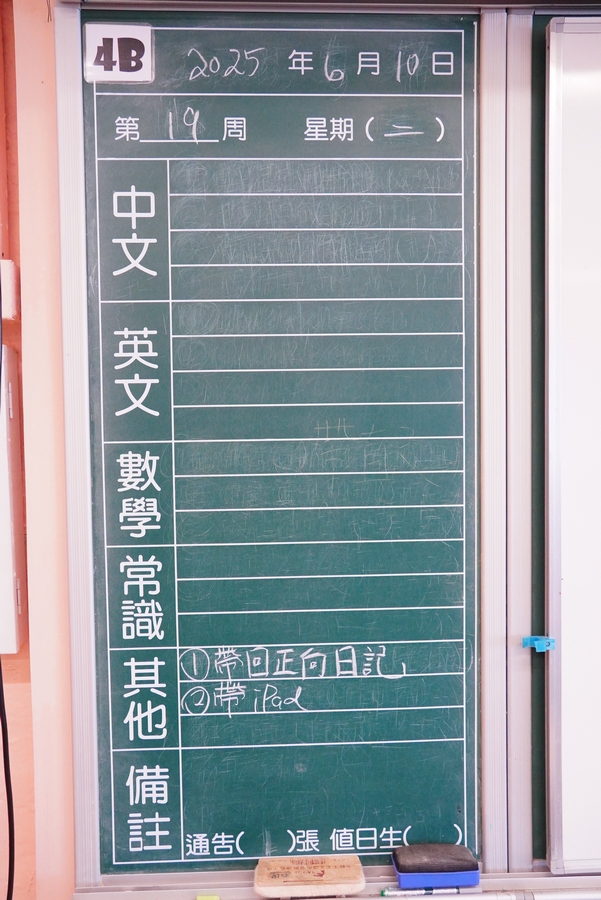 4B
2025 年 6 月 10 日
第 19 周 星期 ( 二 )
中文
英文
數學
常識
其他
①帶回正向日記
②帶 iPad
備註
通告( )張 值日生( )